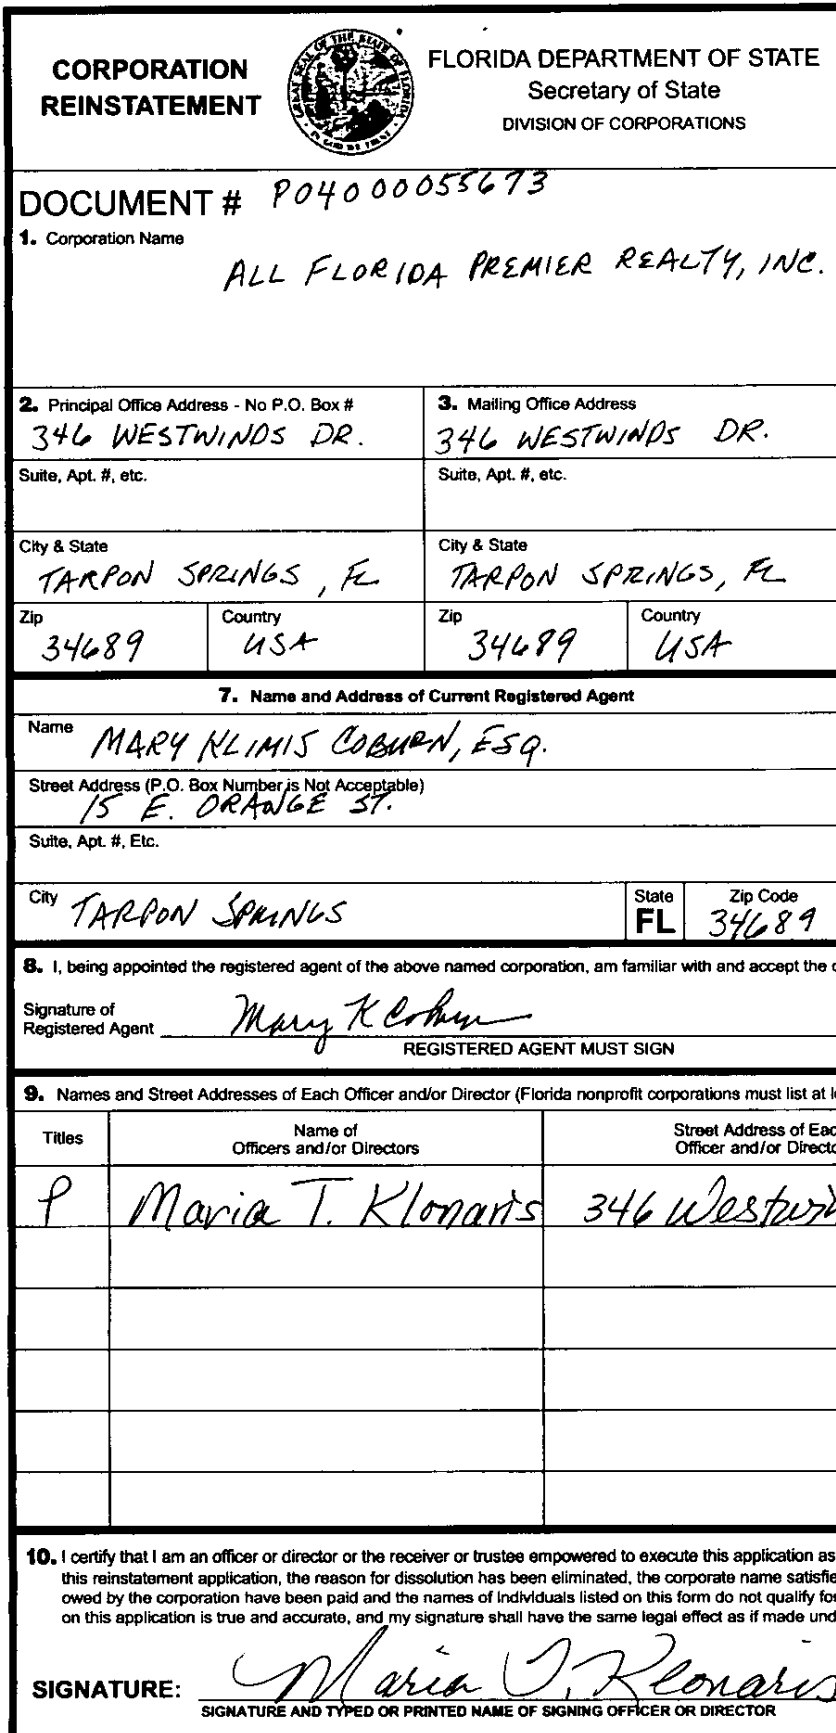 CORPORATION
REINSTATEMENT
FLORIDA DEPARTMENT OF STATE
Secretary of State
DIVISION OF CORPORATIONS
DOCUMENT # P04000055673
1. Corporation Name
ALL FLORIDA PREMIER REALTY, INC.
2. Principal Office Address - No P.O. Box # 3. Mailing Office Address
346 WESTWINDS DR. 346 WESTWINDS DR.
Suite, Apt. #, etc. Suite, Apt. #, etc.
City & State City & State
TARPON SPRINGS, FL TARPON SPRINGS, FL
Zip Country Zip Country
34689 USA 34689 USA
7. Name and Address of Current Registered Agent
Name MARY KLIMIS COBURN, ESQ.
Street Address (P.O. Box Number is Not Acceptable)
15 E. ORANGE ST.
Suite, Apt. #, Etc.
City TARPON SPRINGS State FL Zip Code 34689
8. I, being appointed the registered agent of the above named corporation, am familiar with and accept the
Signature of
Registered Agent Mary K Coburn
REGISTERED AGENT MUST SIGN
9. Names and Street Addresses of Each Officer and/or Director (Florida nonprofit corporations must list at
Titles Name of Street Address of Eac
Officers and/or Directors Officer and/or Directo
P Maria T. Klonaris 346 Westwin
10. I certify that I am an officer or director or the receiver or trustee empowered to execute this application as
this reinstatement application, the reason for dissolution has been eliminated, the corporate name satisfie
owed by the corporation have been paid and the names of individuals listed on this form do not qualify for
on this application is true and accurate, and my signature shall have the same legal effect as if made und
SIGNATURE: Maria T. Klonaris
SIGNATURE AND TYPED OR PRINTED NAME OF SIGNING OFFICER OR DIRECTOR